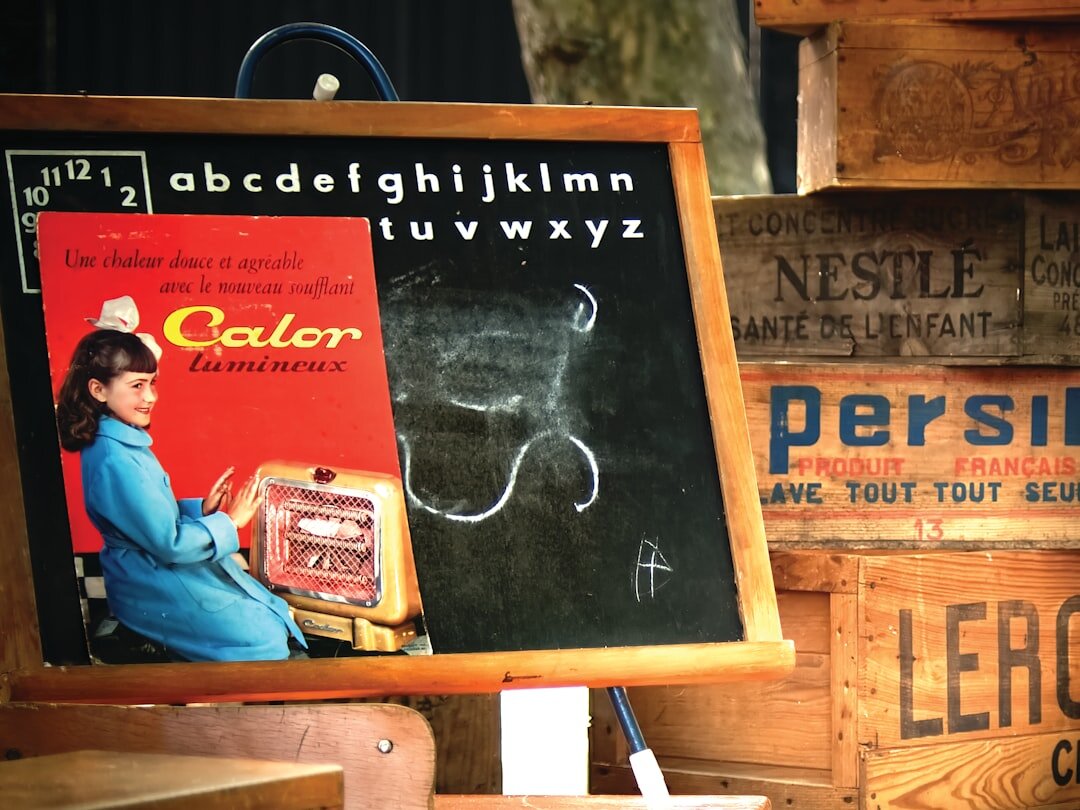 11 12 1
10 2
9
8
abcdefghijklmn
tuvwxyz
Une chaleur douce et agréable
avec le nouveau soufflant
Calor
lumineux
Calor
CONCENTRÉ SUCRÉ
NESTLÉ
SANTÉ DE L'ENFANT
persil
PRODUIT FRANÇAIS
LAVE TOUT TOUT SEUL
13
LERO